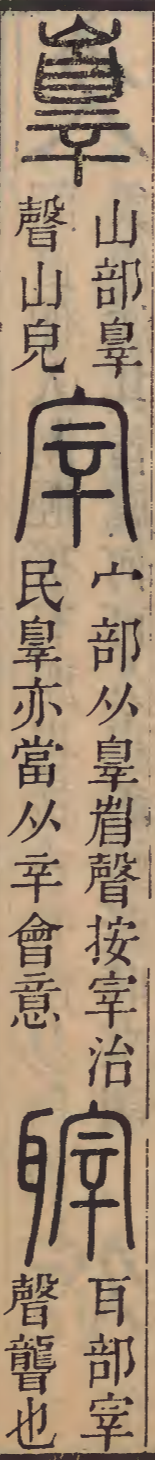 㠑
山部辠
聲山皃
宰
宀部从辠省聲按宰治
民辠亦當从辛會意
䏁
耳部宰
聲聾也